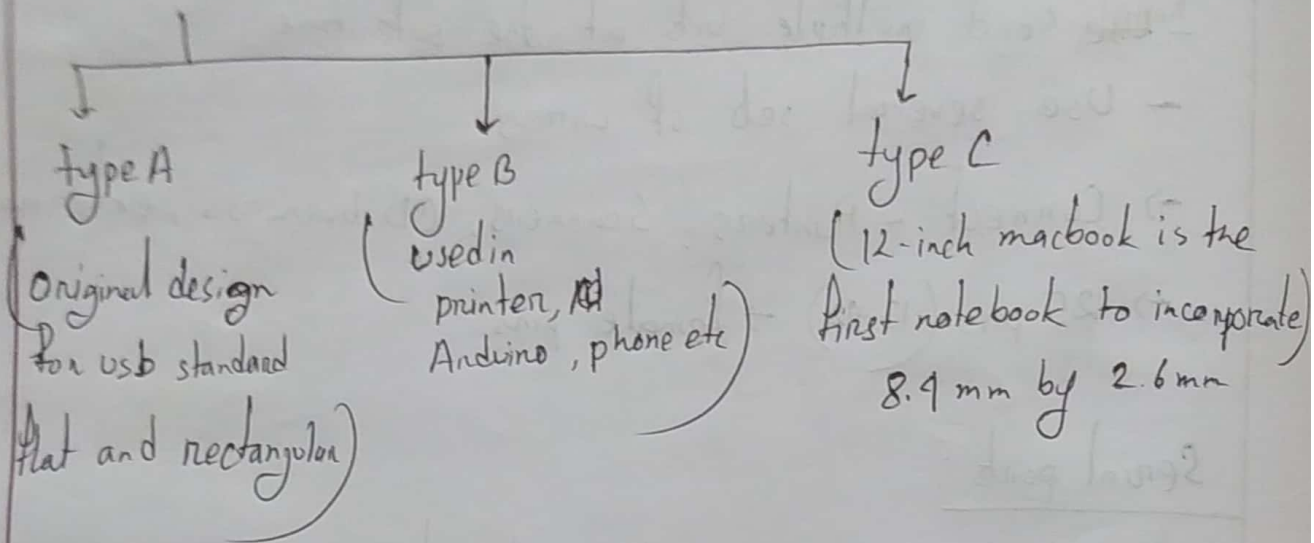 type A
(original design
for usb standard
flat and rectangular)
type B
(used in
printer,
Arduino, phone etc)
type C
(12-inch macbook is the
first notebook to incorporate)
8.4 mm by 2.6 mm